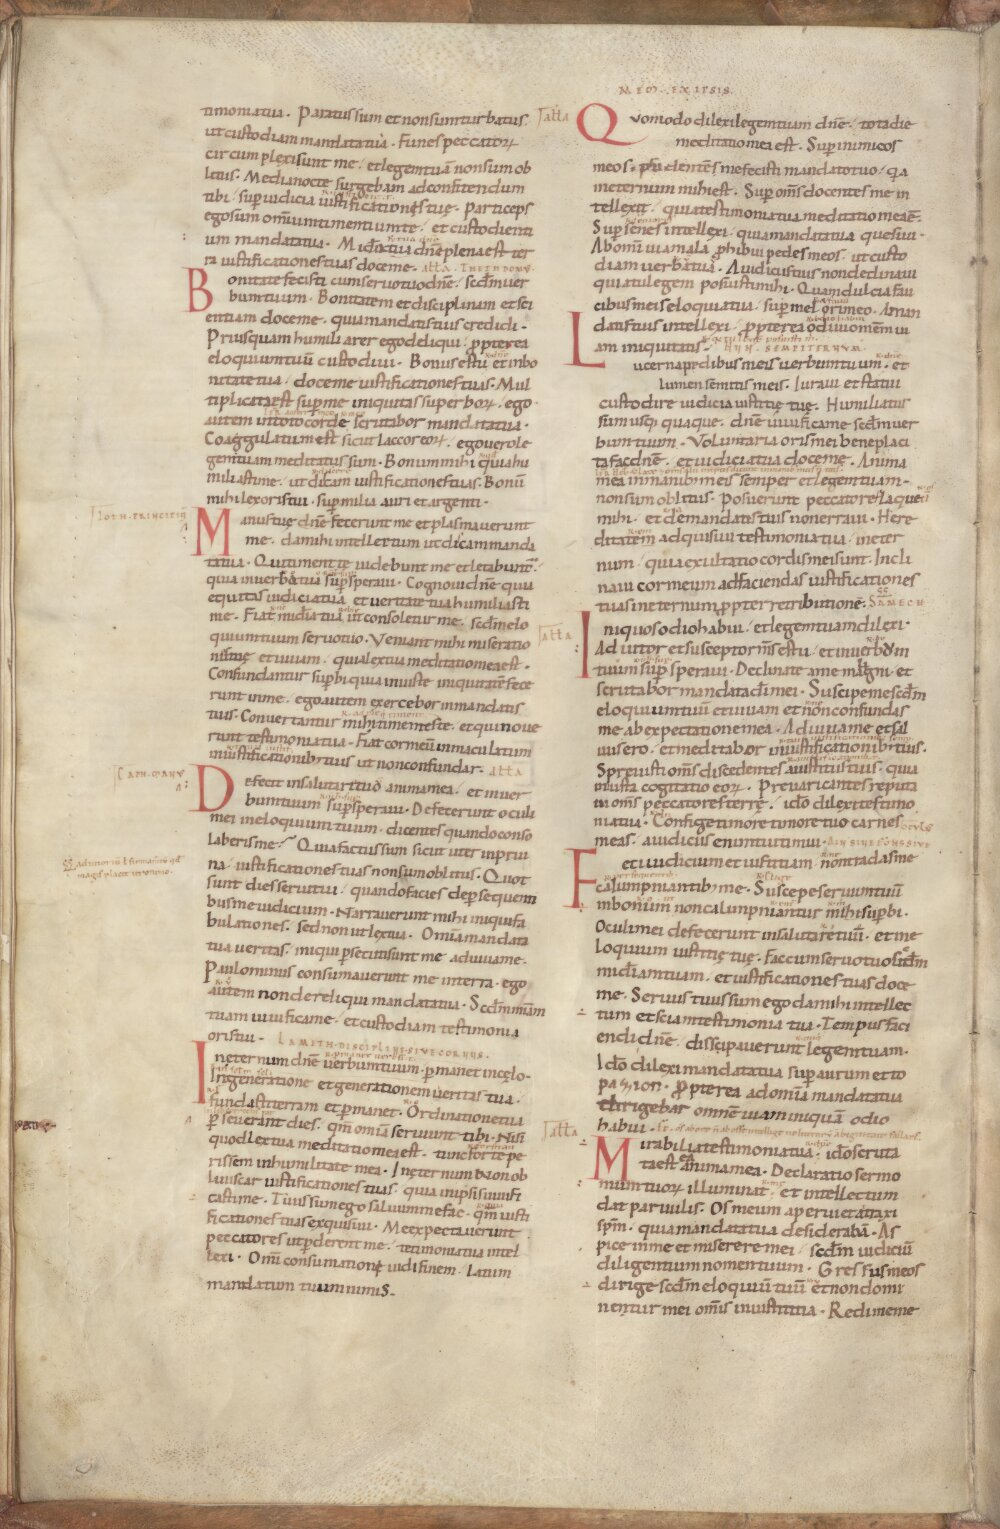 timoniatua. Paratus sum et non sum turbatus
ut custodiam mandata tua. Funes peccatorꝝ
circumplexi sunt me. et legem tuā non sum ob
litus. Media nocte surgebam ad confitendum
tibi. sup iudicia iustificationes tuę. Particeps
ego sum omiū timentium te. et custodienti
um mandata tua. Mīdia tua dñe plena est ter
ra iustificationes tuas doce me.
Bonitatē fecisti cum seruo tuo dñe. scdm uer
bum tuum. Bonitatem et disciplinam et sci
entiam doce me. quia mandatis tuis credidi.
Priusquam humiliarer ego deliqui. ppterea
eloquium tuū custodiui. Bonus es tu et in bo
nitate tua. doce me iustificationes tuas. Mul
tiplicata est sup me iniquitas superborꝝ. ego
autem in toto corde scrutabor mandata tua.
Coaggulatum est sicut lac cor eorꝝ. ego uero le
gem tuam meditatus sum. Bonum mihi quia hu
miliasti me. ut dicam iustificationes tuas. Bonū
mihi lex oris tui. sup milia auri et argenti.
IOTH. PRINCIPIŪ
Manus tuę dñe fecerunt me et plasmauerunt
me. da mihi intellectum ut dicam manda
ta tua. Qui timent te uidebunt me et letabunt.
quia in uerba tua supsperaui. Cognoui dñe quia
equitas iudicia tua. et ueritate tua humiliasti
me. Fiat mīdia tua ut consoletur me. scdm elo
quium tuum seruo tuo. Veniant mihi miseratio
nes tuę et uiuam. quia lex tua meditatio mea est.
Confundantur supbi quia iniuste iniquitatē fece
runt in me. ego autem exercebor in mandatis
tuis. Conuertantur mihi timentes te. et qui noue
runt testimonia tua. Fiat cor meū inmaculatum
in iustificationibꝰ tuis ut non confundar.
CAPH. MANV
Defecit in salutari tuo anima mea. et in uer
bum tuum supsperaui. Defecerunt oculi
mei in eloquium tuum. dicentes quando conso
laberis me. Quia factus sum sicut uter in prui
na. iustificationes tuas non sum oblitus. Quot
sunt dies serui tui. quando facies de psequen
bus me iudicium. Narrauerunt mihi iniqui fa
bulationes. sed non ut lex tua. Omīa mandata
tua ueritas. iniqui psecuti sunt me adiuua me.
Paulominus consumauerunt me in terra. ego
autem non dereliqui mandata tua. Scdm mīam
tuam uiuifica me. et custodiam testimonia
oris tui. LAMETH. DISCIPLINE SIVE CORDIS.
Inęternum dñe uerbum tuum. pmanet in cęlo.
In generatione et generationem ueritas tua.
fundasti terram et pmanet. Ordinatione tua
pseuerant dies. qm̄ omīa seruiunt tibi. Nisi
quod lex tua meditatio mea est. tunc forte pe
rissem in humilitate mea. Inęternum non ob
liuiscar iustificationes tuas. quia in ipsis uiuifi
casti me. Tuus sum ego saluum me fac. qm̄ iusti
ficationes tuas exquisiui. Me expectauerunt
peccatores ut pderent me. testimonia tua intel
lexi. Omī consumatione uidi finem. Latum
mandatum tuum nimis.
MEM. EX IPSIS.
Quomodo dilexi legem tuam dñe. tota die
meditatio mea est. Sup inimicos
meos prudentē me fecisti mandato tuo. qa
in eternum mihi est. Sup om̄s docentes me in
tellexi. quia testimonia tua meditatio mea ē.
Sup senes intellexi. quia mandata tua quesiui.
Ab omī uia mala phibui pedes meos. ut custo
diam uerba tua. A iudiciis tuis non declinaui
quia tu legem posuisti mihi. Quam dulcia fau
cibus meis eloquia tua. sup mel ori meo. A man
datis tuis intellexi. ppterea odiui omēm ui
am iniquitatis. NVN. SEMPITERNVM.
Lucerna pedibus meis uerbum tuum. et
lumen semitis meis. Iuraui et statui
custodire iudicia iustitię tuę. Humiliatus
sum usq quaque. dñe uiuifica me scdm uer
bum tuum. Voluntaria oris mei beneplaci
ta fac dñe. et iudicia tua doce me. Anima
mea in manibꝰ meis semper et legem tuam
non sum oblitus. Posuerunt peccatores laqueū
mihi. et de mandatis tuis non erraui. Here
ditatem adquisiui testimonia tua. in eter
num. quia exultatio cordis mei sunt. Incli
naui cor meum ad faciendas iustificationes
tuas in eternum ppter retributionē. SAMECH
Iniquos odio habui. et legem tuam dilexi.
Adiutor et susceptor m̄s es tu. et in uerbum
tuum supsperaui. Declinate a me maligni. et
scrutabor mandata dī mei. Suscipe me scdm
eloquium tuū et uiuam et non confundas
me ab expectatione mea. Adiuua me et sal
uus ero. et meditabor in iustificationibꝰ tuis.
Spreuisti om̄s discedentes a iustitiis tuis. quia
iniusta cogitatio eorꝝ. Preuaricantes reputa
ui om̄s peccatores terrę. ido dilexi testimo
nia tua. Confige timore tuo carnes
meas. a iudiciis enim tuis timui. AIN SIVE FONS SIVE
Feci iudicium et iustitiam. non tradas me
calumpniantibꝰ me. Suscipe seruum tuū
in bonum non calumpniantur mihi supbi.
Oculi mei defecerunt in salutare tuū. et in e
loquium iustitię tuę. Fac cum seruo tuo scdm
mīdiam tuam. et iustificationes tuas doce
me. Seruus tuus sum ego da mihi intellec
tum et sciam testimonia tua. Tempus faci
endi dñe. dissipauerunt legem tuam.
Ido dilexi mandata tua sup aurum et to
pazion. ppterea ad omīa mandata tua
dirigebar omnē uiam iniquā odio
habui.
Mirabilia testimonia tua. ido scruta
ta est anima mea. Declaratio sermo
num tuorꝝ illuminat. et intellectum
dat paruulis. Os meum aperui et attraxi
spm̄. quia mandata tua desiderabā. As
pice in me et miserere mei. scdm iudiciū
diligentium nomen tuum. Gressus meos
dirige scdm eloquiū tuū et non domi
netur mei omīs iniustitia. Redime me